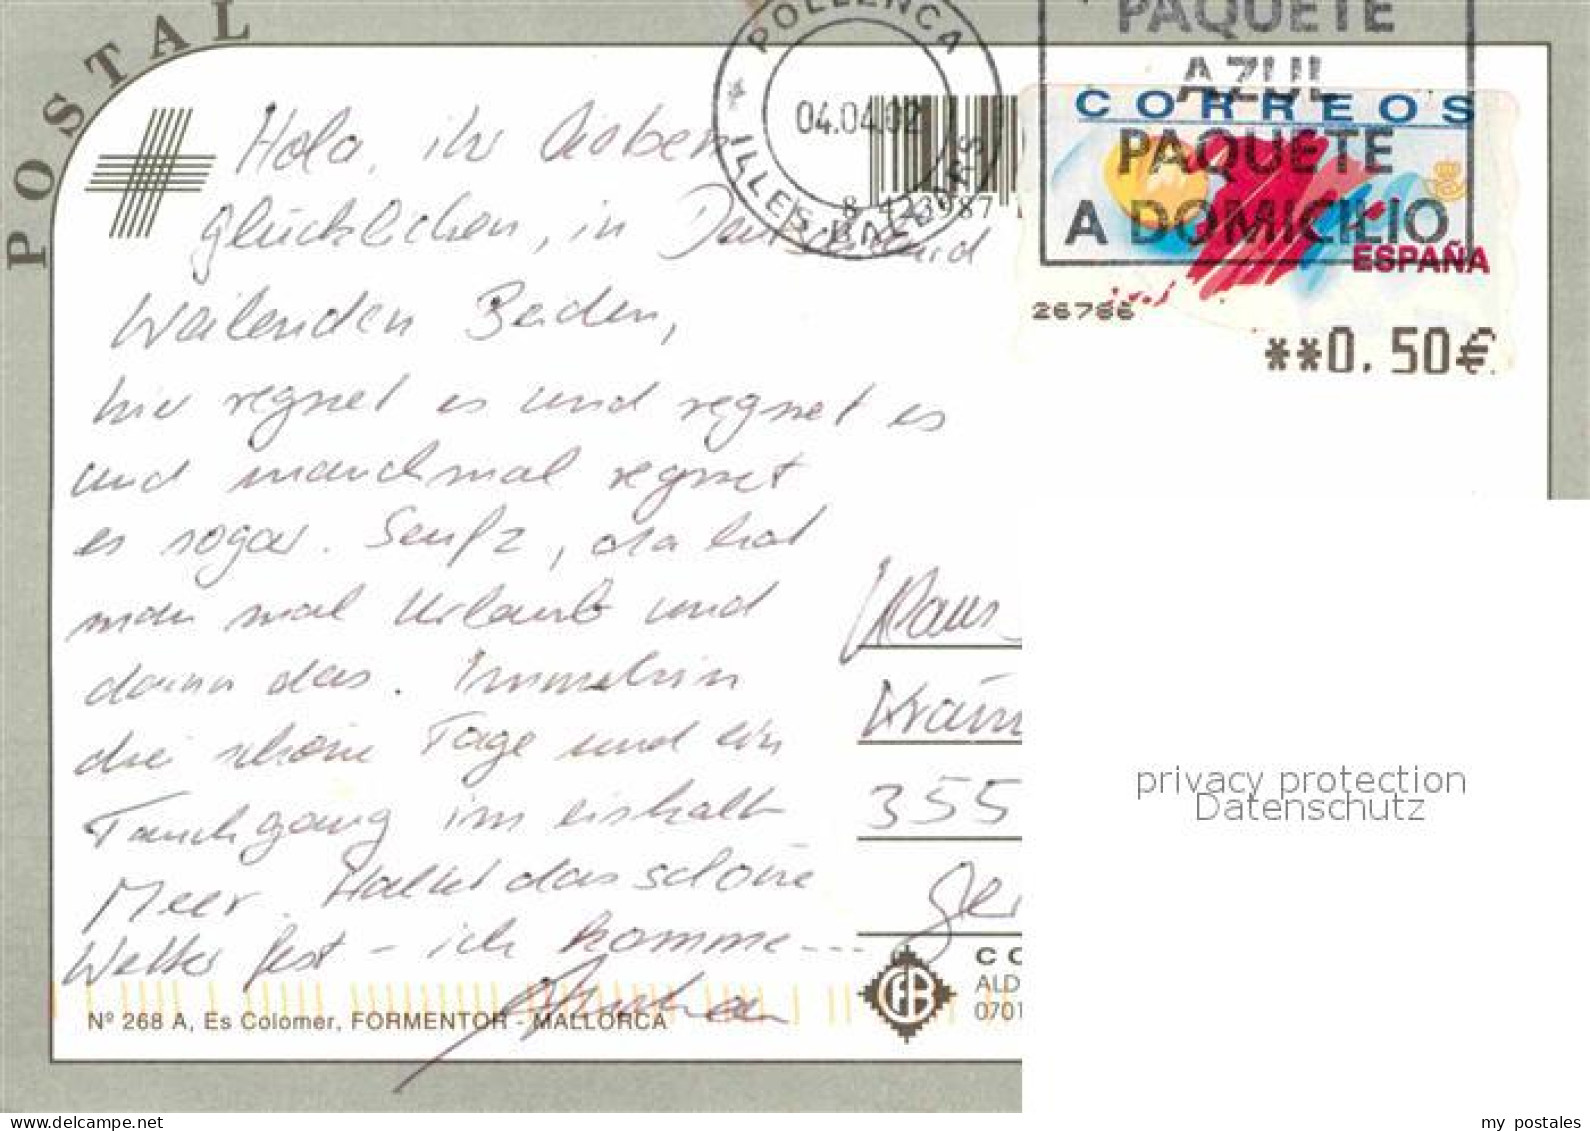 POSTAL
POLLENCA
04.04.02
ILLES BALEARS
PAQUETE
AZUL
PAQUETE
A DOMICILIO
CORREOS
ESPAÑA
26786
**0.50€
Hola, ihr lieben
glücklichen, in Deutschland
Weilenden Beiden,
hier regnet es und regnet es
und manchmal regnet
es sogar. Seufz, da hat
man mal Urlaub und
dann das. Immerhin
drei schöne Tage und ein
Tauchgang im eiskalten
Meer. Haltet das schöne
Wetter fest - ich komme---
Klaus
355
Ger
Nº 268 A, Es Colomer, FORMENTOR - MALLORCA
ALD
0701
privacy protection
Datenschutz
my postales